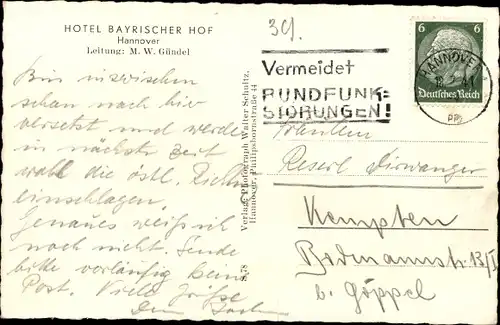 HOTEL BAYRISCHER HOF
Hannover
Leitung: M. W. Gündel
Bin inzwischen
schon nach hier
versetzt und werde
in nächster Zeit
wohl die östl. Richtg
einschlagen.
Genaues weiß ich
noch nicht. Sende
bitte vorläufig keine
Post. Viele Grüße
Dein
S. 78
Verlag: Photograph Walter Schultz,
Hannover, Philipsbornstraße 44
39.
Vermeidet
RUNDFUNK-
STÖRUNGEN!
6 6
Deutsches Reich
HANNOVER
Fräulein
Reserl Dirwanger
Kempten
Bodmanstr. 13/I
b. Göppel